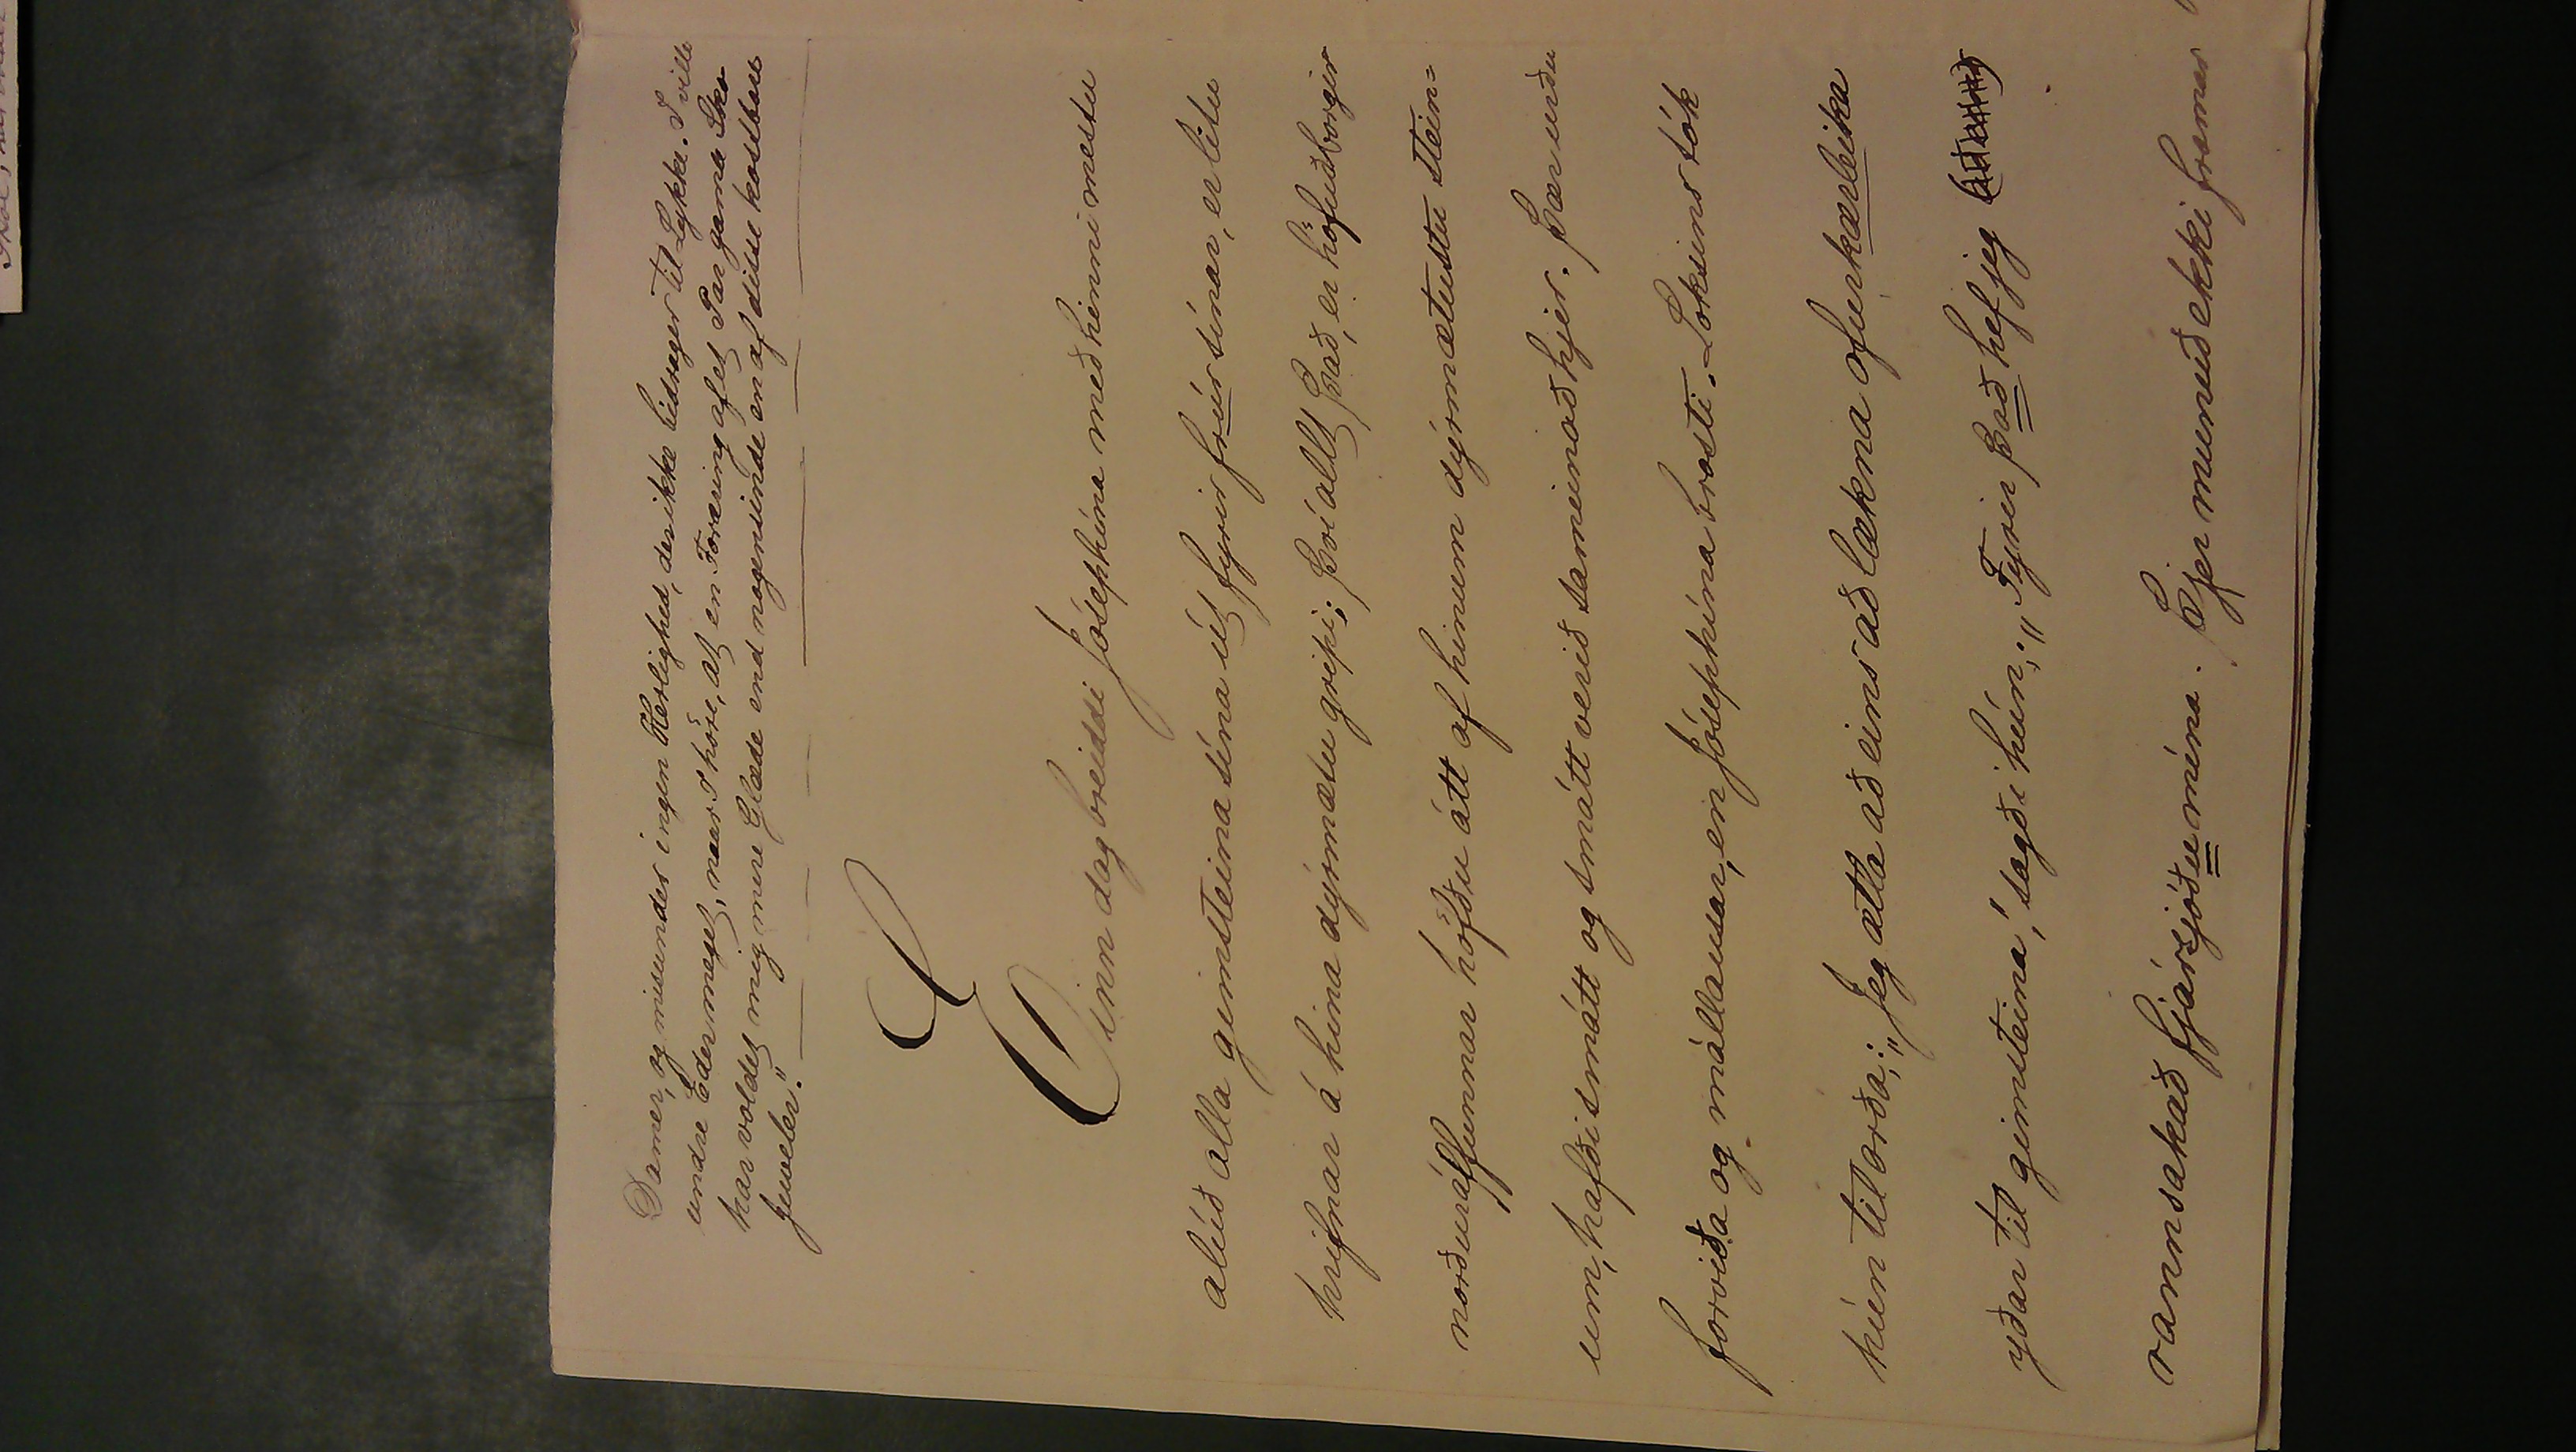 Damer, og misunder ingen Herlighed, der ikke bidrager til Lykke. I ville
undre Eder meget, naar I höre, at en Foræring af et Par gamle Sko
har voldet mig mere Glæde end nogensinde en af disse kostbare
Juveler."
Einn dag breiddi Jósephína með heinni mestu
alúð alla gimsteina sína út fyrir frúr sínar, er litu
hrifnar á hina dýrmætu gripi; því allt það, er höfuðborgir
norðurálfunnar höfðu átt af hinum dýrmætustu stein=
um, hafði smátt og smátt verið sameinað hjer. Þær urðu
forviða og mállausar, en Jósephína brosti. Loksins tók
hún til orða: "Jeg ætla að eins að lækna ofurkærleika
yðar til gimsteina," sagði hún; "Fyrir það hef jeg
rannsakað fjársjóðu mína. Þjer munuð ekki framar